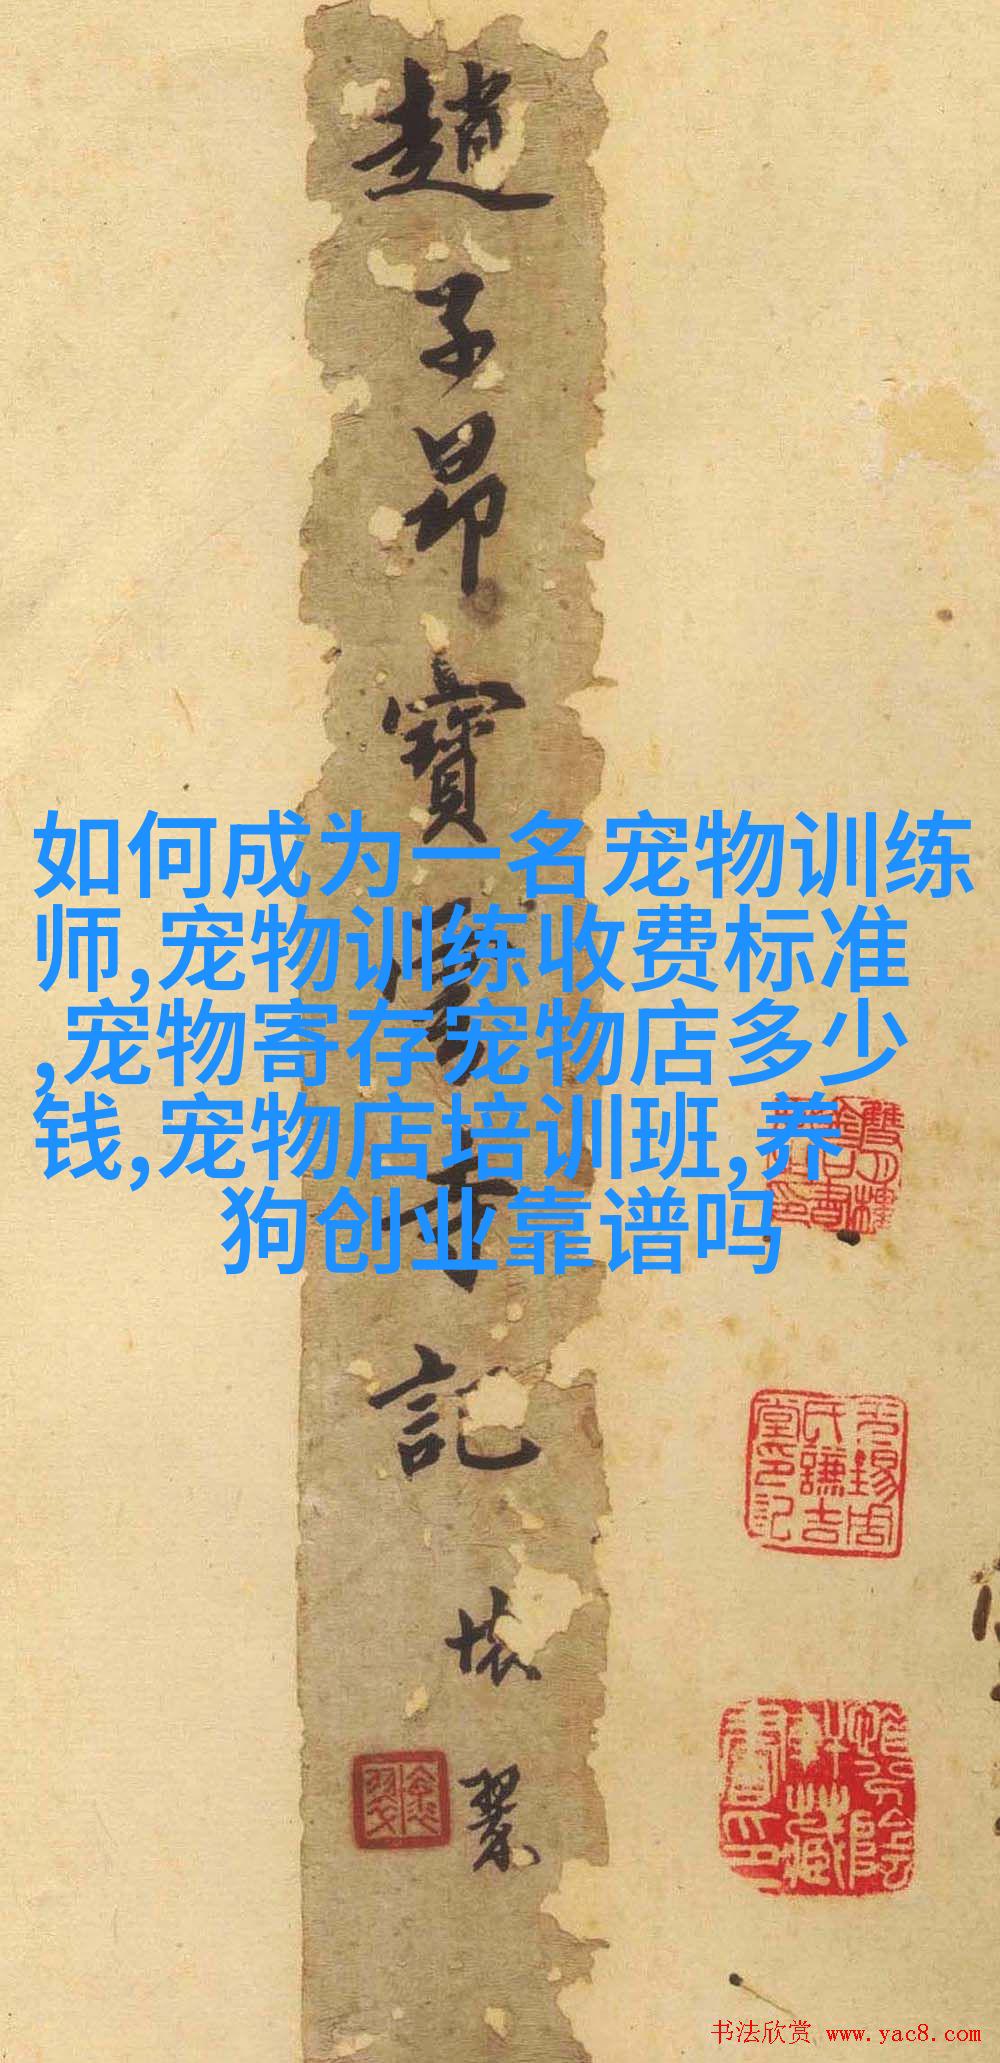 趙子昂寶雲寺記
如何成为一名宠物训练
师,宠物训练收费标准
,宠物寄存宠物店多少
钱,宠物店培训班,养
狗创业靠谱吗
书法欣赏 www.yac8.com